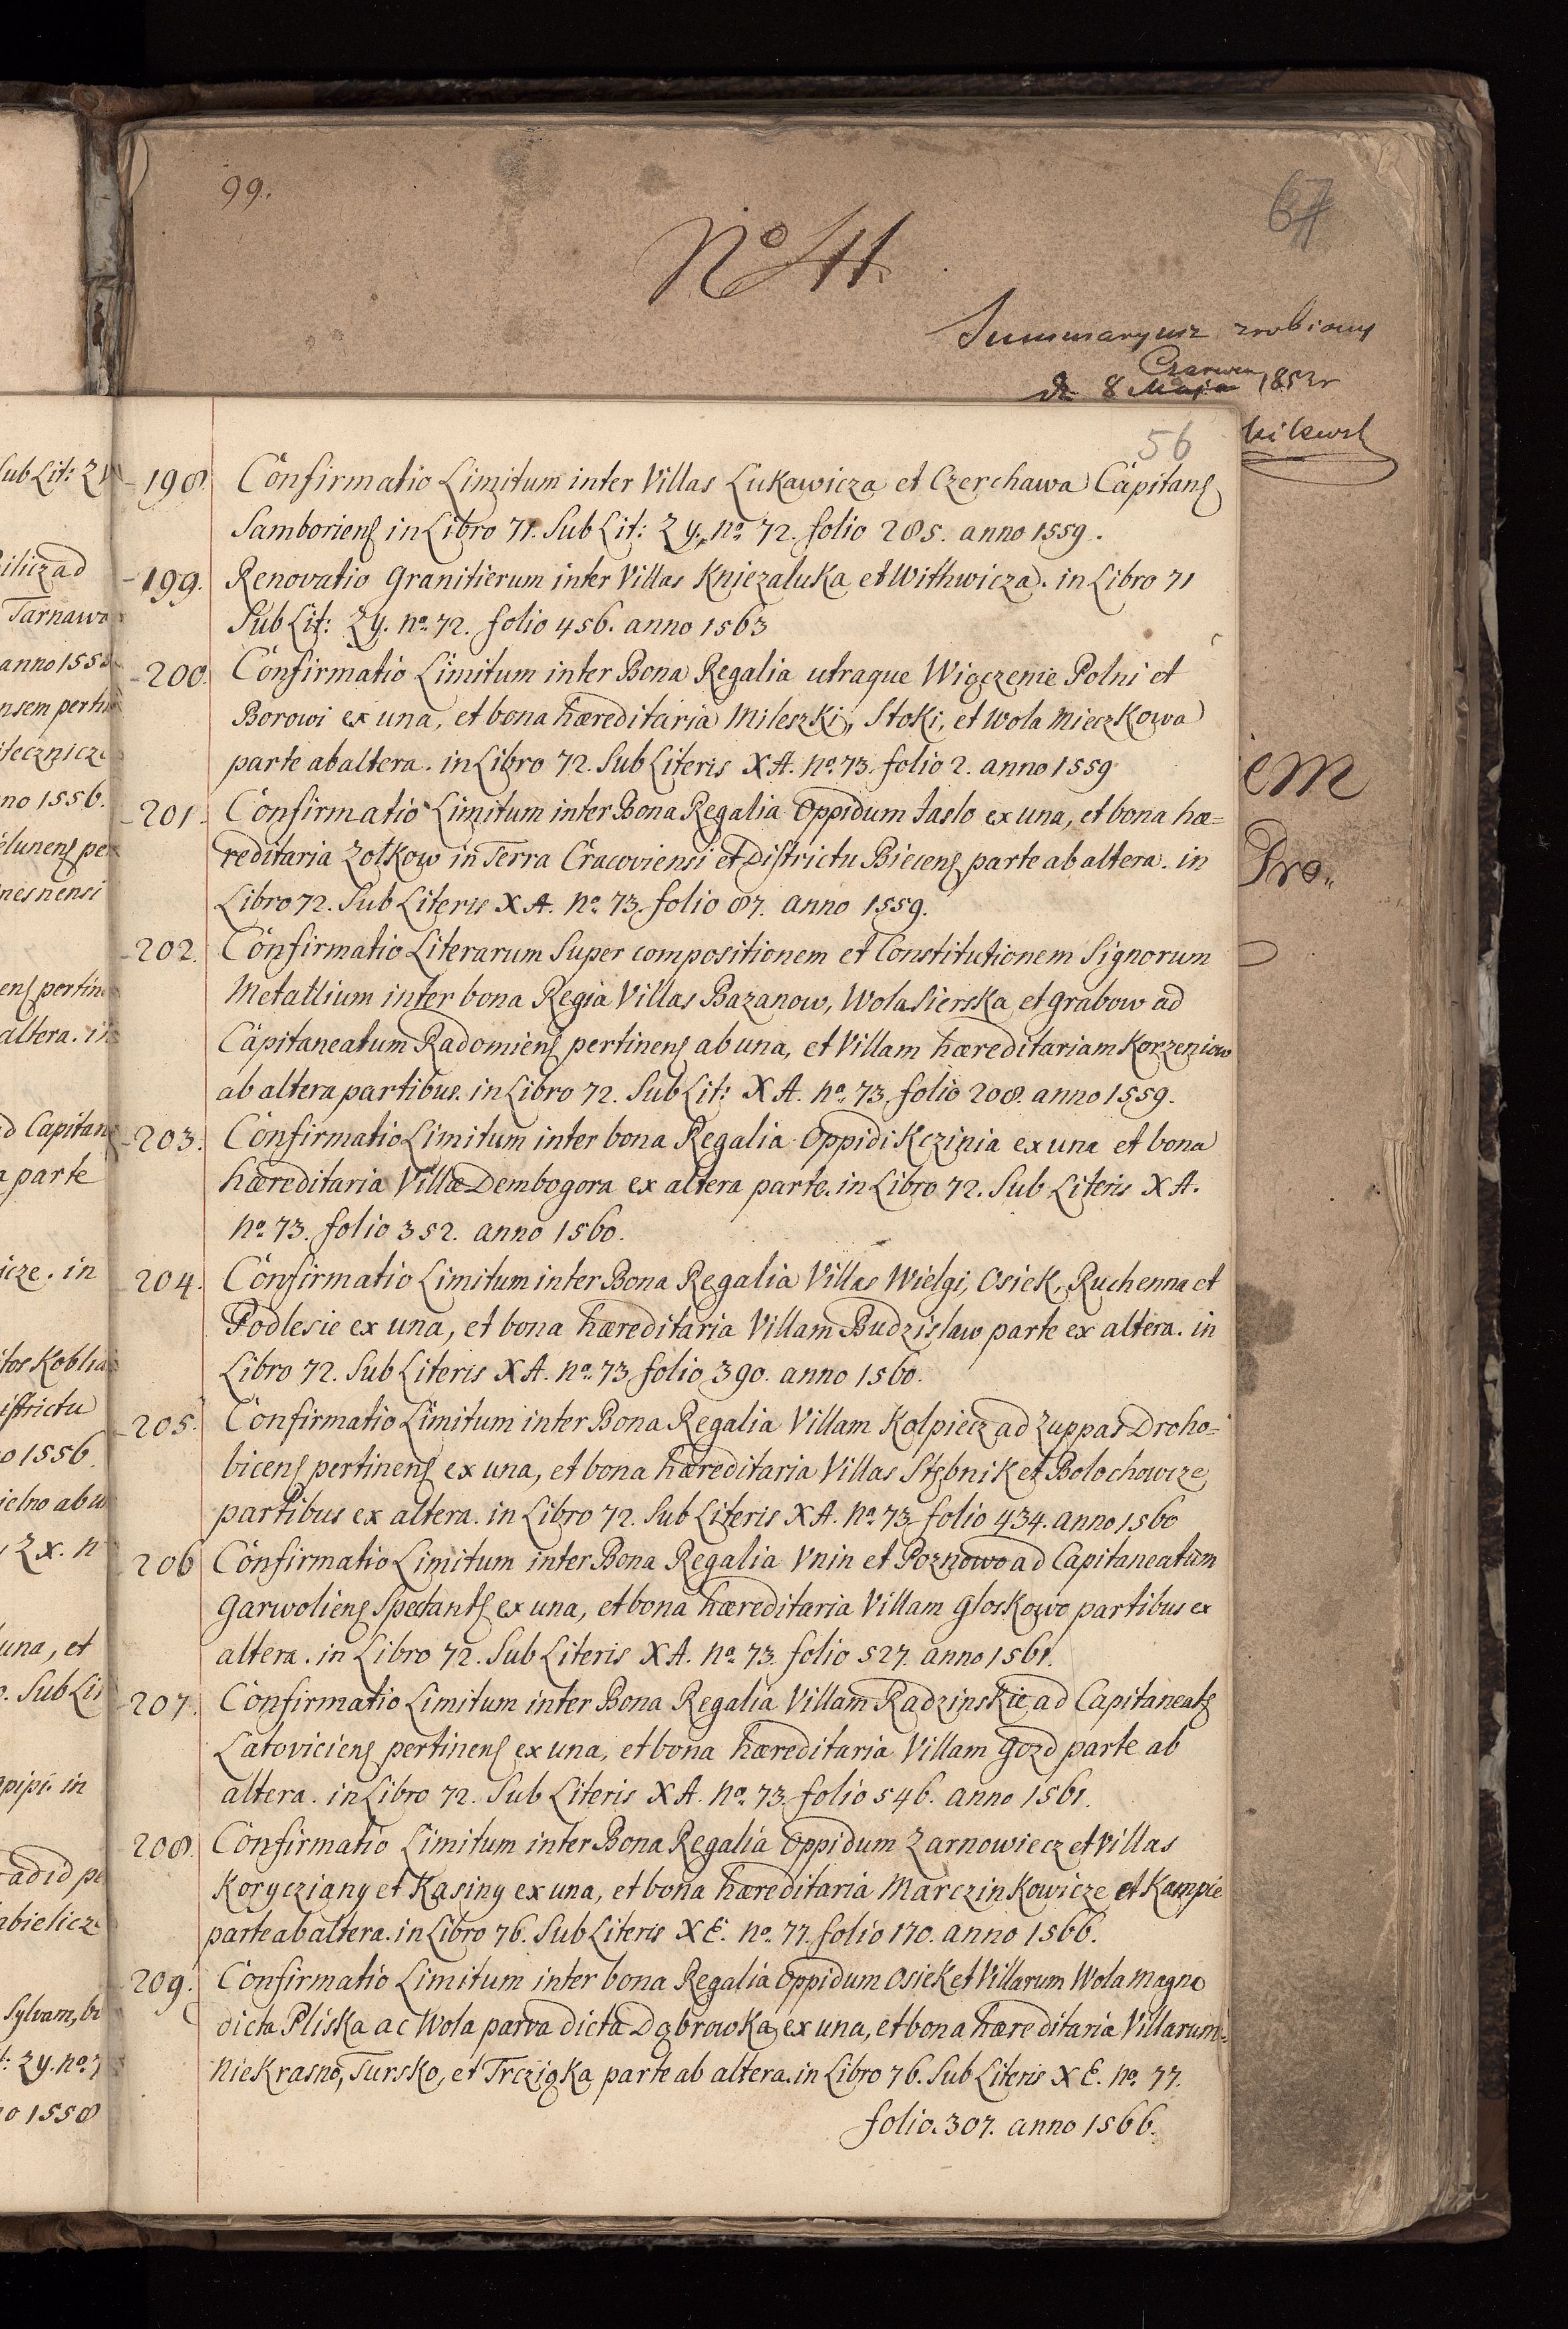 99.
67
Nº 41.
Summaryusz zrobiony
Czerwca
d. 8 Maja 1852 r
56
198. Confirmatio Limitum inter Villas Lukawicza et Czerchawa Capitanȩ
Samboriensȩ in Libro 71. Sub Lit: ZY. nº 72. folio 285. anno 1559.
199. Renovatio Granitierum inter Villas Kniezaluka et Withwicza. in Libro 71
Sub Lit: Zy. nº 72. folio 456. anno 1563
200. Confirmatio Limitum inter Bona Regalia utraque Wiączenie Polni et
Borowi ex una, et bona hæreditaria Mileszki, Stoki, et Wola Mieczkowa
parte ab altera. in Libro 72. Sub Literis XA. nº 73. folio 2. anno 1559
201. Confirmatio Limitum inter Bona Regalia Oppidum Jaslo ex una, et bona hæ=
reditaria Zolkow in Terra Cracoviensi et Districtu Biecensȩ parte ab altera. in
Libro 72. Sub Literis XA. nº 73. folio 87. anno 1559.
202. Confirmatio Literarum Super compositionem et Constitutionem Signorum
Metallium inter bona Regia Villas Bazanow, Wola Sierska et Grabow ad
Capitaneatum Radomiensȩ pertinensȩ ab una, et Villam hæreditariam Korzeniow
ab altera partibus. in Libro 72. Sub Lit: XA. nº 73. folio 208. anno 1559.
203. Confirmatio Limitum inter bona Regalia Oppidi Kczinia ex una et bona
hæreditaria Villæ Dembogora ex altera parte. in Libro 72. Sub Literis XA.
nº 73. folio 352. anno 1560.
204. Confirmatio Limitum inter Bona Regalia Villas Wielgi, Osiek, Ruchenna et
Podlesie ex una, et bona hæreditaria Villam Budzislaw parte ex altera. in
Libro 72. Sub Literis XA. nº 73 folio 390. anno 1560.
205. Confirmatio Limitum inter Bona Regalia Villam Kolpiecz ad Zuppas Droho=
bicensȩ pertinensȩ ex una, et bona hæreditaria Villas Stębnik et Bolochowcze
partibus ex altera. in Libro 72. Sub Literis XA. nº 73 folio 434. anno 1560
206 Confirmatio Limitum inter Bona Regalia Vnin et Poznowo ad Capitaneatum
Garwoliensȩ Spectantȩ ex una, et bona hæreditaria Villam Gloskowo partibus ex
altera. in Libro 72. Sub Literis XA. nº 73. folio 527. anno 1561.
207. Confirmatio Limitum inter Bona Regalia Villam Radzinskie ad Capitaneatȩ
Latoviciensȩ pertinensȩ ex una, et bona hæreditaria Villam Gozd parte ab
altera. in Libro 72. Sub Literis XA. nº 73 folio 546. anno 1561.
208. Confirmatio Limitum inter Bona Regalia Oppidum Zarnowiecz et Villas
Korycziany et Kasiny ex una, et bona hæreditaria Marczinkowicze et Kampie
parte ab altera. in Libro 76. Sub Literis XE. nº 77. folio 170. anno 1566.
209. Confirmatio Limitum inter bona Regalia Oppidum Osiek et Villarum Wola magna
dicta Pliska ac Wola parva dicta Dąbrowka ex una, et bona hæreditaria Villarum=
Niekrasno, Tursko, et Trcziąka parte ab altera. in Libro 76. Sub Literis XE. nº 77.
folio. 307. anno 1566.